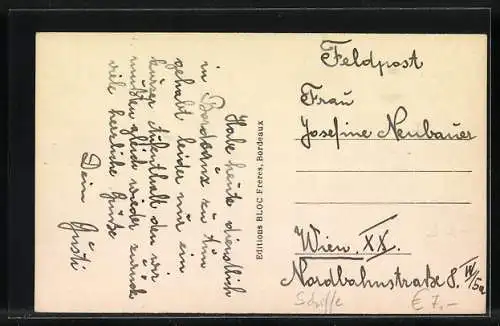 Habe heute dienstlich
in Bordeaux zu tun
gehabt leider nur ein
kurzer Aufenthalt den wir
mußten gleich wieder zurück
viele herzliche Grüße
Dein Gusti
Editions BLOC Frères, Bordeaux
Feldpost
Frau
Josefine Neubauer
Wien XX.
Nordbahnstraße 8. IV/5a
Schiffe
€ 7.-